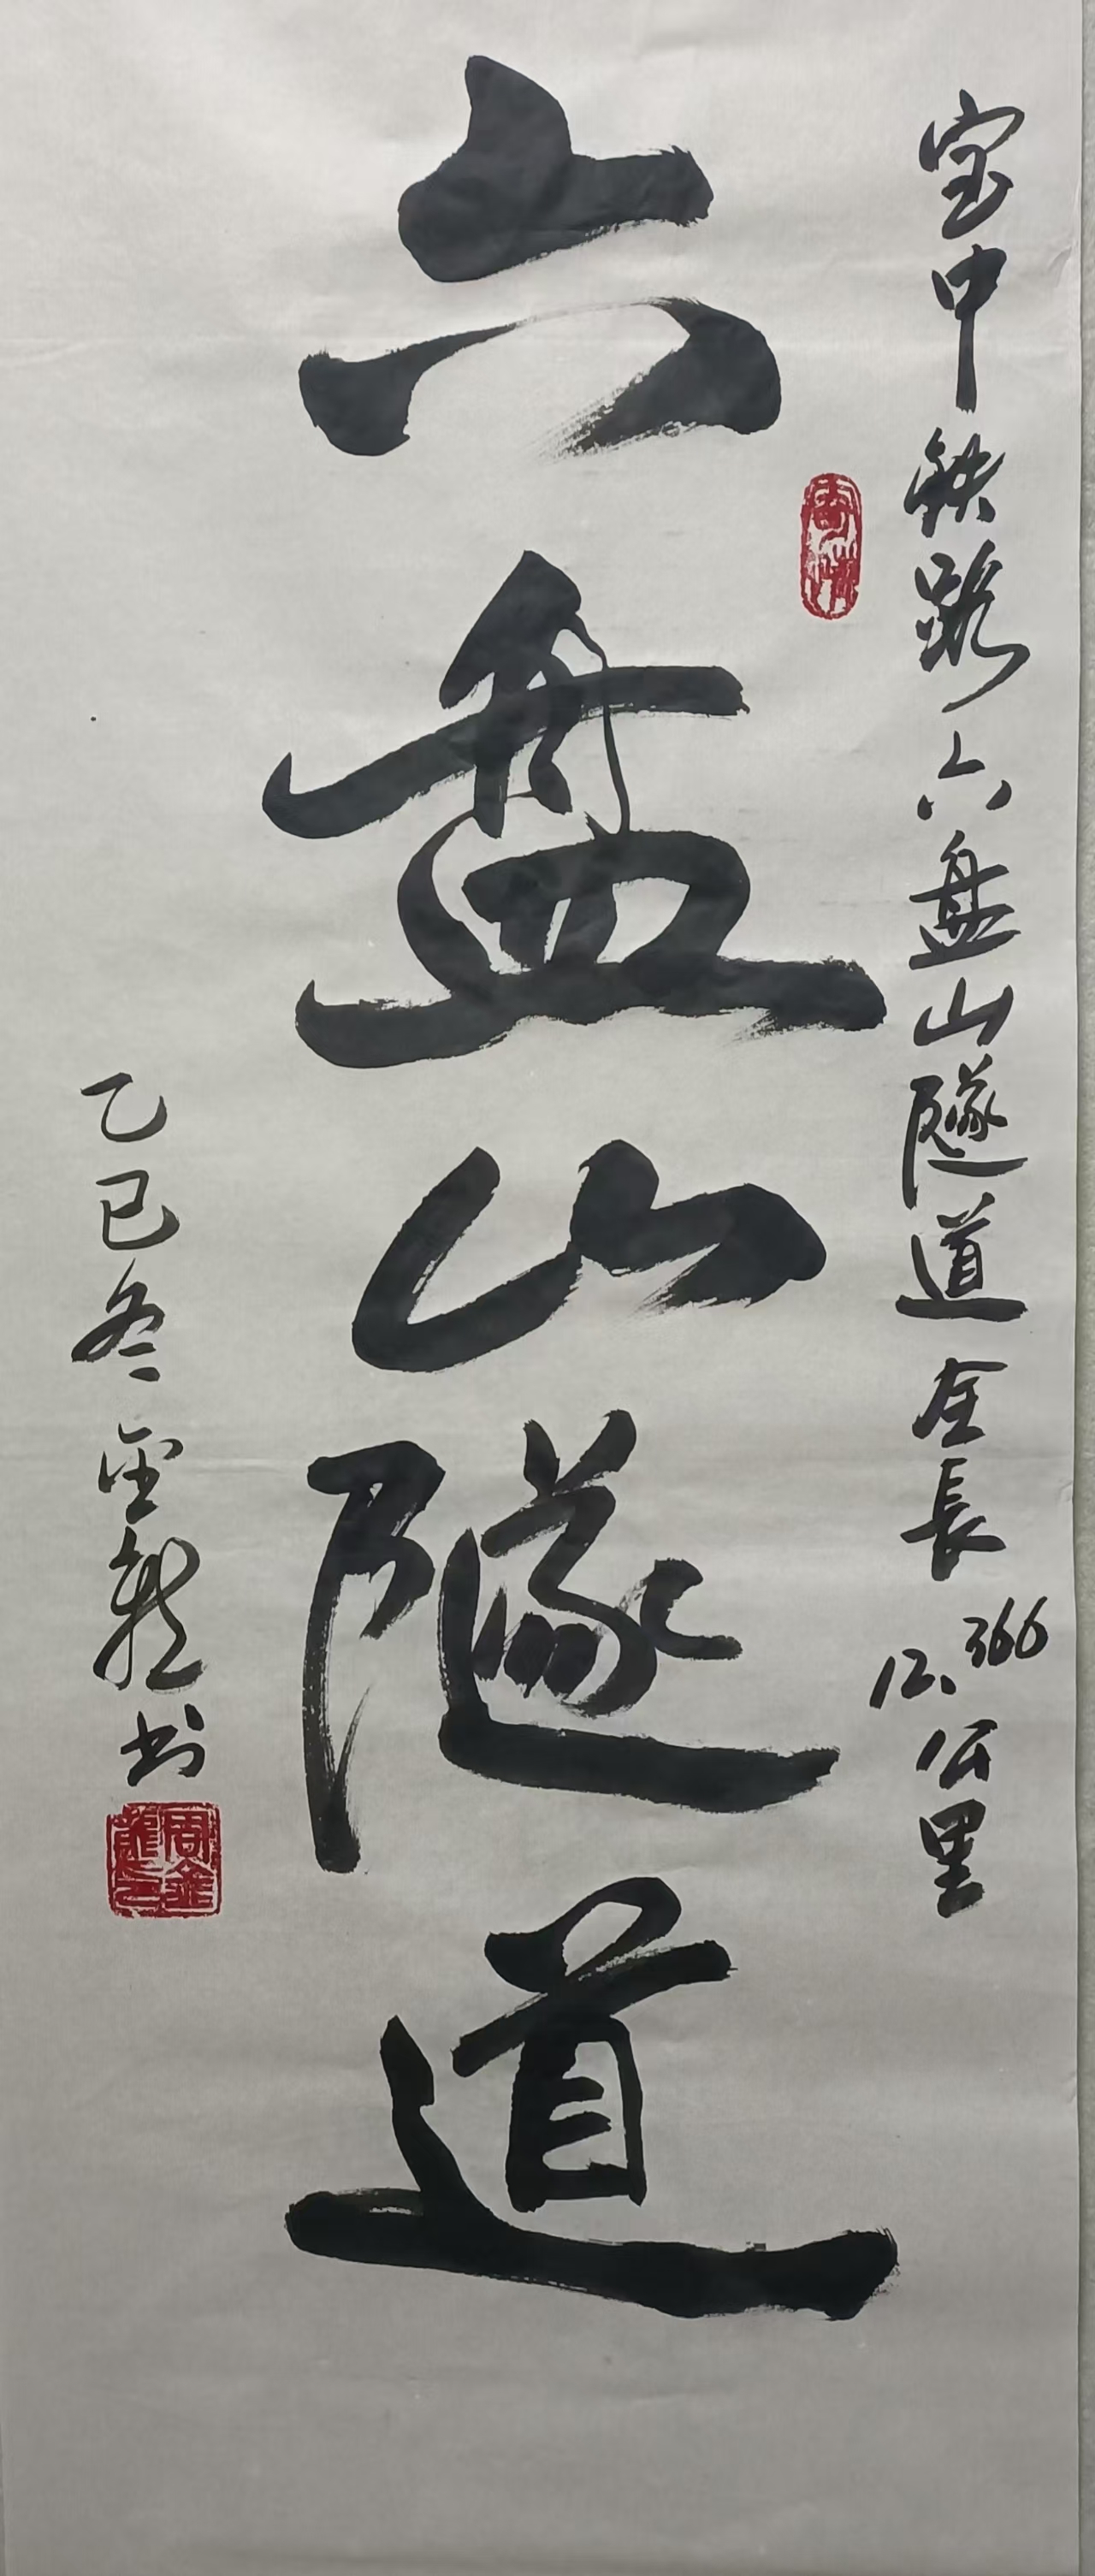 宝中铁路六盘山隧道全長12.366公里
六盘山隧道
乙巳冬金龍书
周金龍印